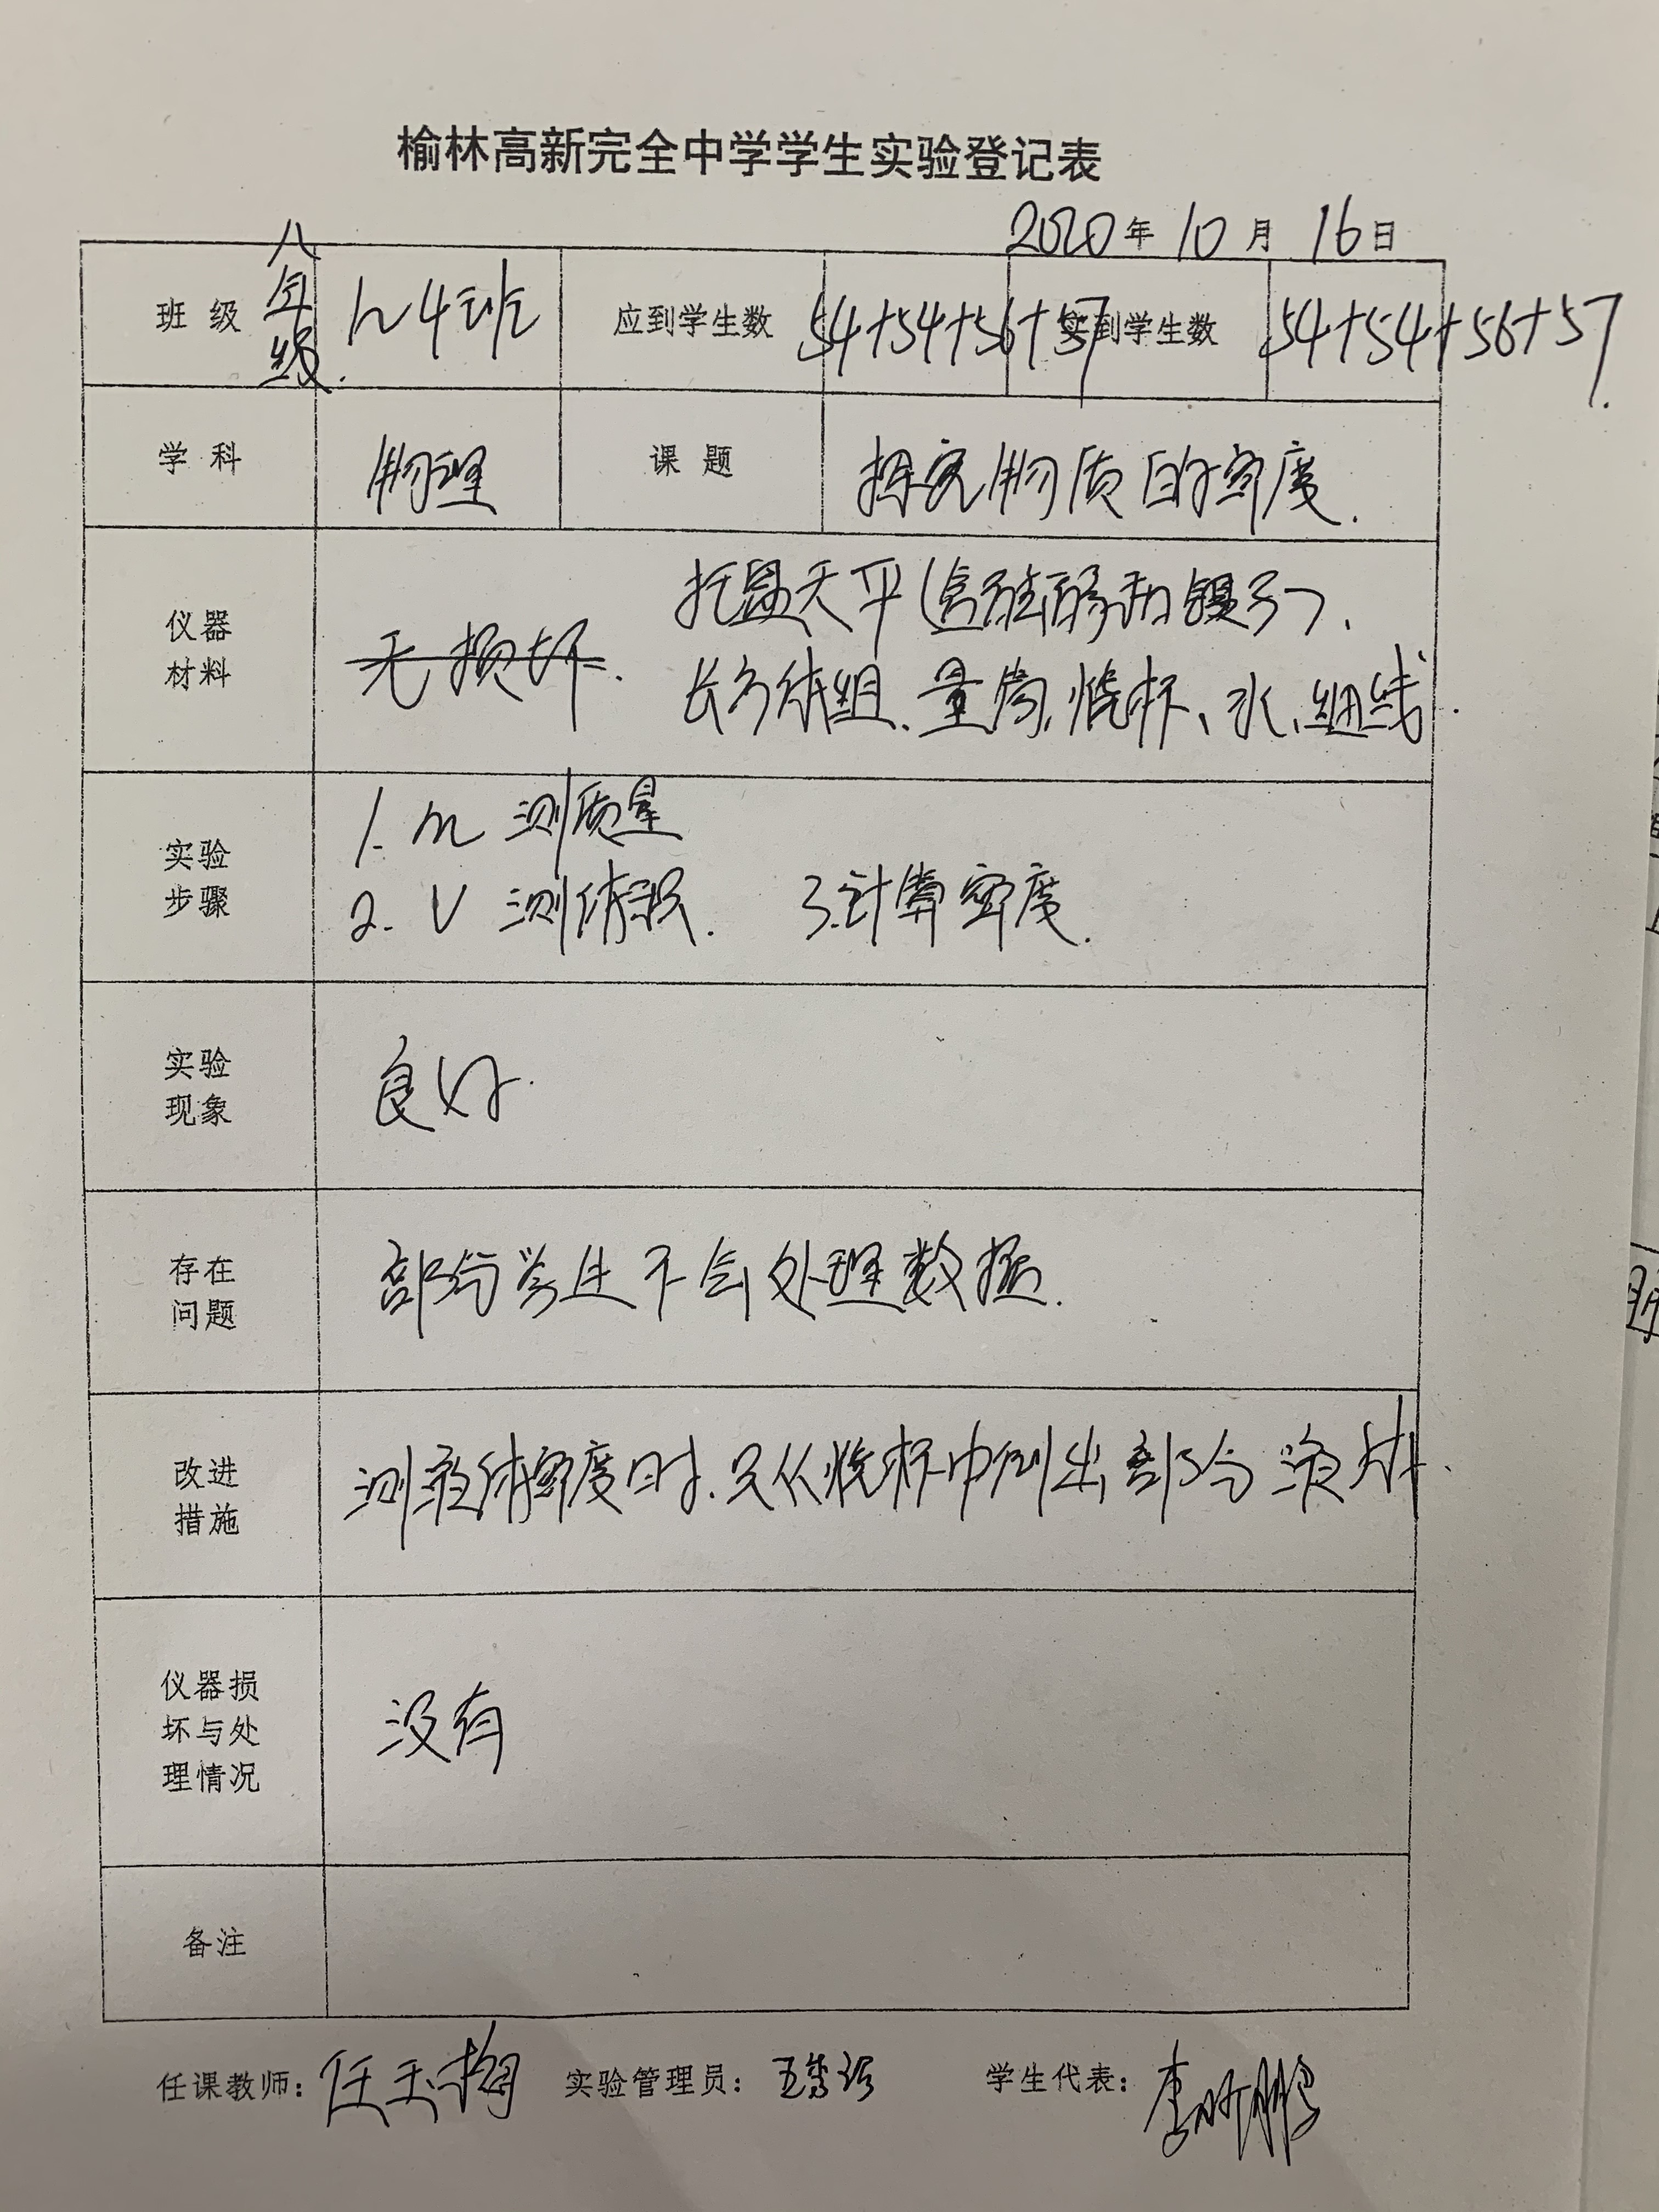 榆林高新完全中学学生实验登记表
2020年10月16日
班级 八年级. 1~4班 应到学生数 54+54+56+57 实到学生数 54+54+56+57.
学科 物理 课题 探究物质的密度.
仪器 托盘天平(含砝码和镊子)、
材料 无损坏. 长方体组、量筒、烧杯、水、细线.
实验 1. m 测质量
步骤 2. V 测体积. 3.计算密度.
实验
现象 良好.
存在 部分学生不会处理数据.
问题
改进 测液体密度时.只从烧杯中倒出部分液体.
措施
仪器损
坏与处 没有
理情况
备注
任课教师: 任玉梅 实验管理员: 学生代表: 李